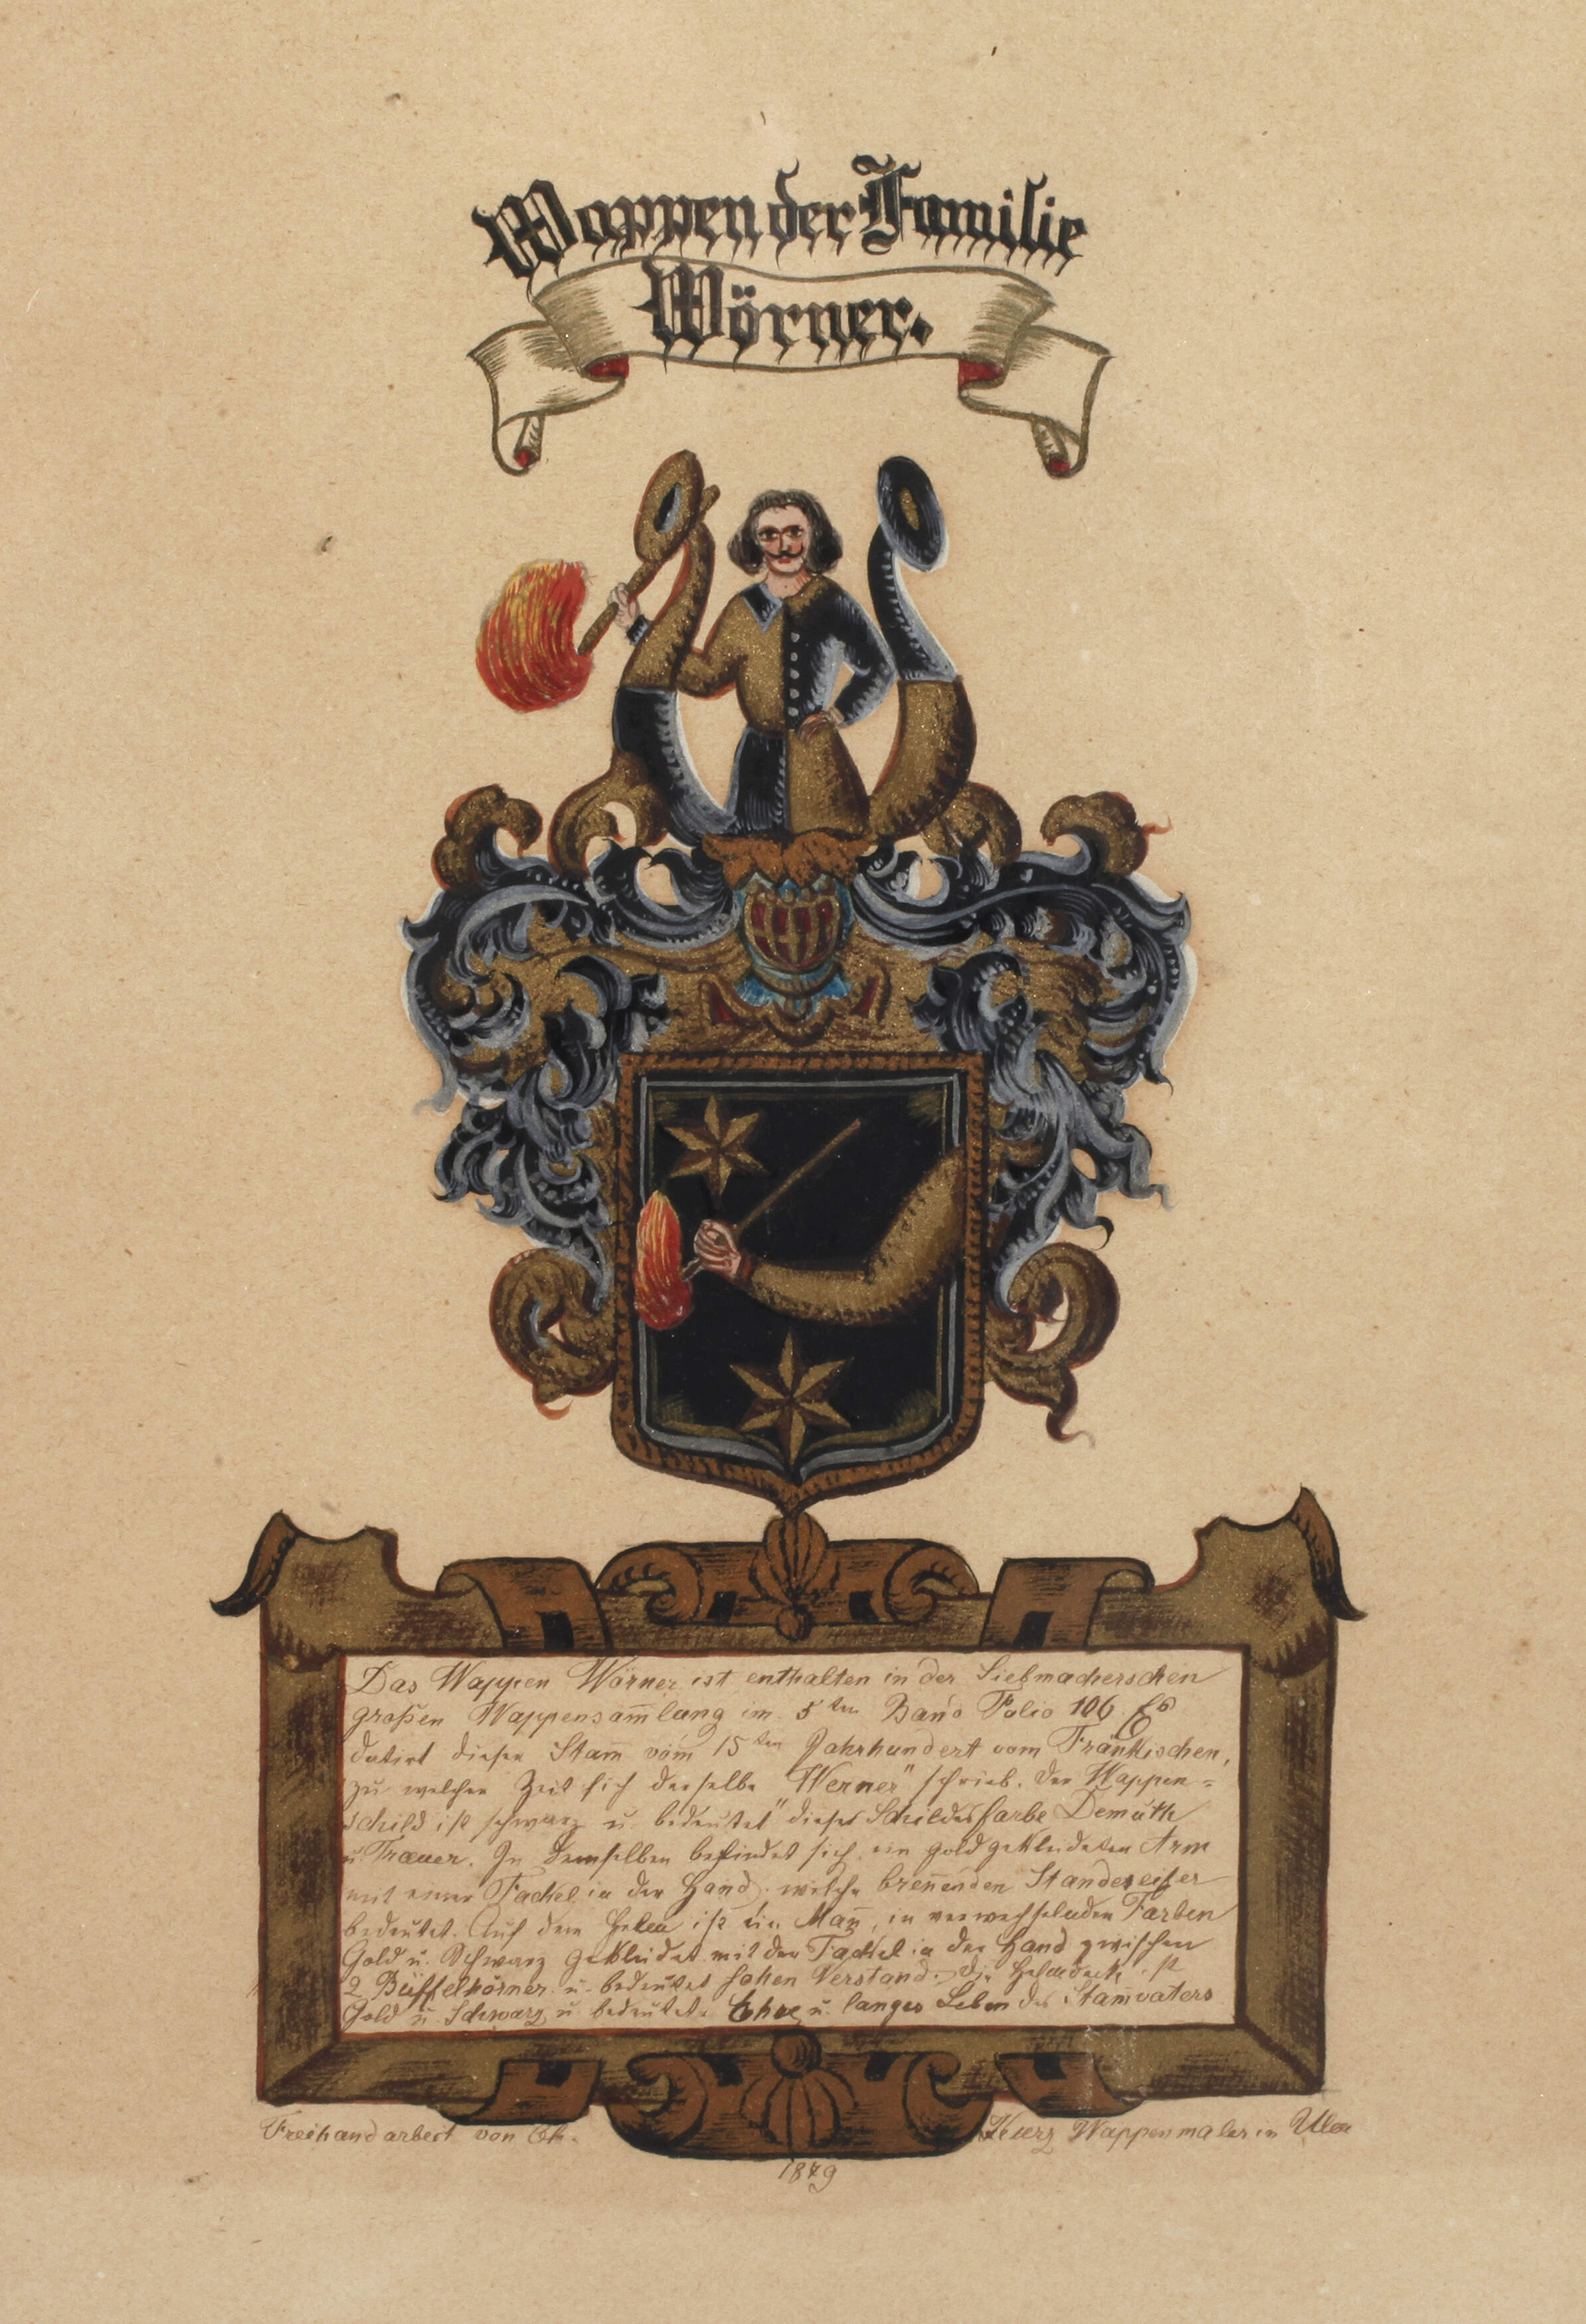 Wappen der Familie
Wörner.
Das Wappen Wörner ist enthalten in der Siebmacherschen
großen Wappensam̅lung im 5ten Band Folio 106. Es
datirt dieser Stam̅ vom 15ten Jahrhundert vom Fränkischen,
zu welcher Zeit sich derselbe "Werner" schrieb. Der Wappen=
schild ist schwarz u. bedeutet dieses Schildesfarbe Demuth
u. Trauer. In demselben befindet sich ein goldgekleideter Arm
mit einer Fackel in der Hand, welche bren̅enden Standeseifer
bedeutet. Auf dem Helm ist ein Man̅, in verwechselnden Farben
Gold u. Schwarz gekleidet mit der Fackel in der Hand zwischen
2 Büffelhörner u. bedeutet hohen Verstand. Die Helmdecke ist
Gold u. Schwarz u. bedeutet Ehre u. langes Leben des Stam̅vaters
Freihandarbeit von Ch. Kurz Wappenmaler in Ulm
1879